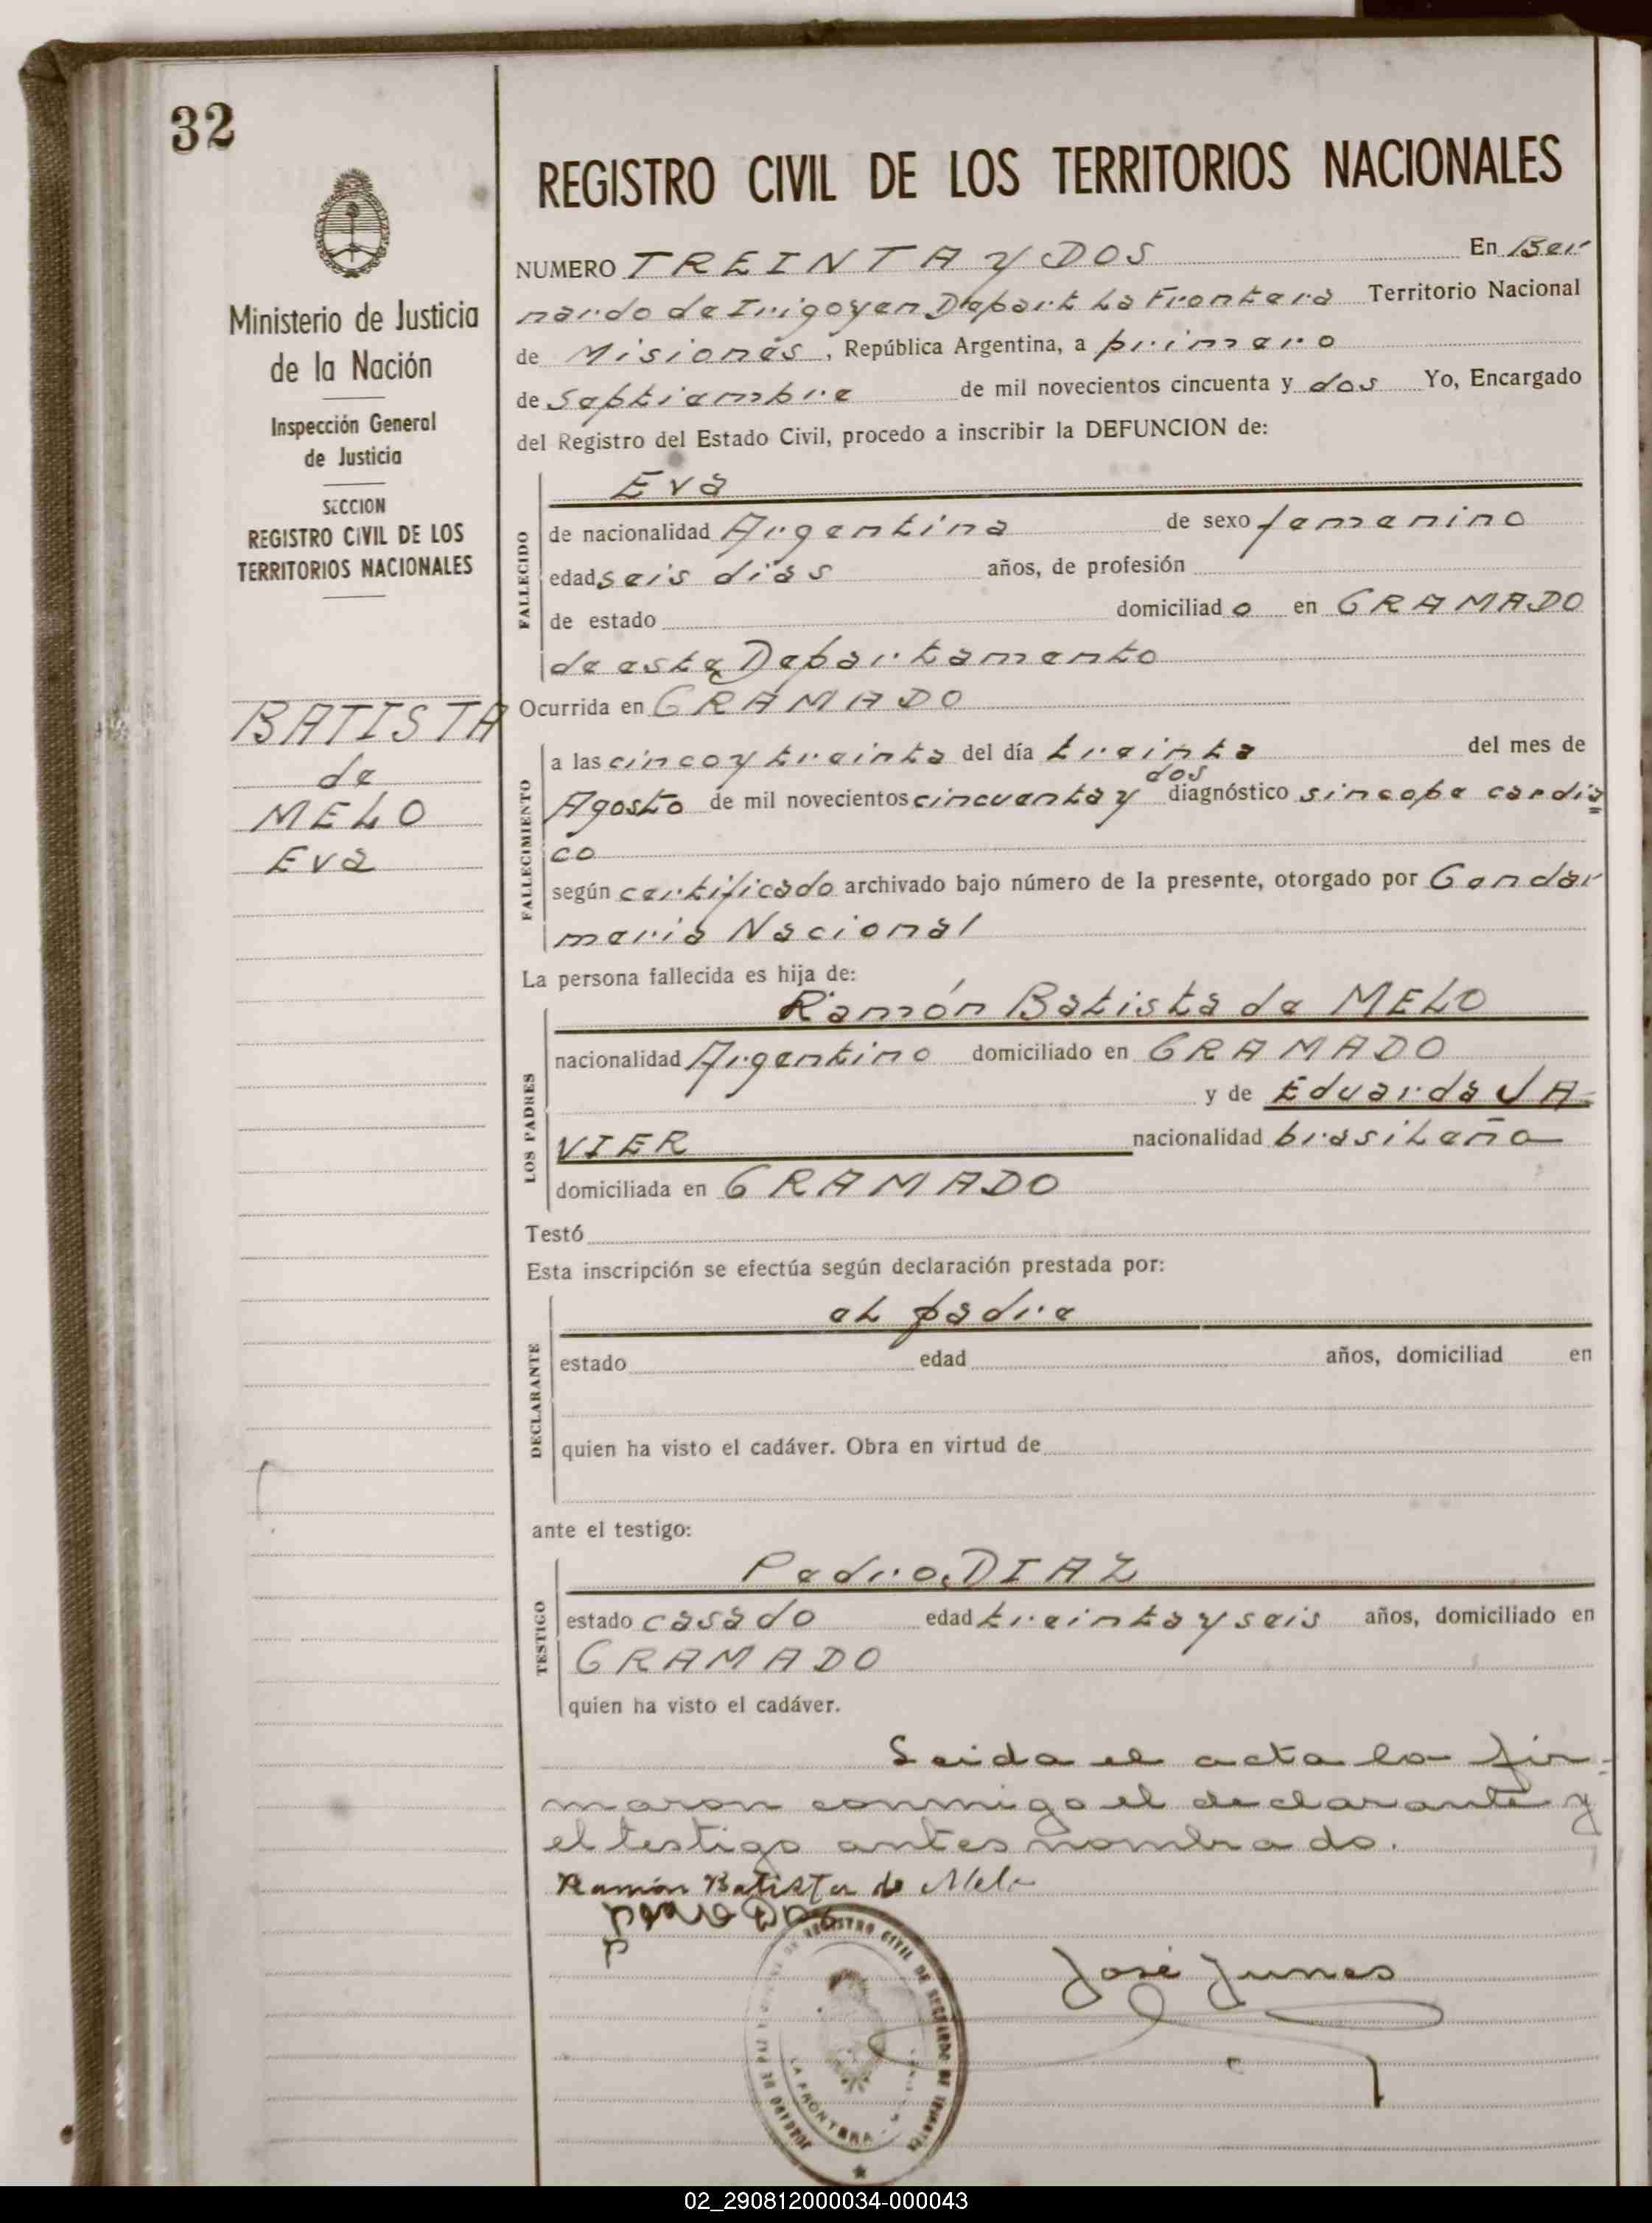 32
Ministerio de Justicia
de la Nación
Inspección General
de Justicia
SECCION
REGISTRO CIVIL DE LOS
TERRITORIOS NACIONALES
BATISTA
de
MELO
Eva
REGISTRO CIVIL DE LOS TERRITORIOS NACIONALES
NUMERO TREINTA y DOS En Ber
nardo de Irigoyen Depart La Frontera Territorio Nacional
de Misiones, República Argentina, a primero
de Septiembre de mil novecientos cincuenta y dos Yo, Encargado
del Registro del Estado Civil, procedo a inscribir la DEFUNCION de:
FALLECIDO
Eva
de nacionalidad Argentina de sexo femenino
edad seis días años, de profesión
de estado domiciliado en GRAMADO
de este Departamento
Ocurrida en GRAMADO
FALLECIMIENTO
a las cinco y treinta del día treinta del mes de
dos
Agosto de mil novecientos cincuenta y diagnóstico sincope cardia
co
según certificado archivado bajo número de la presente, otorgado por Gendar
meria Nacional
La persona fallecida es hija de:
LOS PADRES
Ramón Batista de MELO
nacionalidad Argentino domiciliado en GRAMADO
y de Eduarda JA-
VIER nacionalidad brasileña
domiciliada en GRAMADO
Testó
Esta inscripción se efectúa según declaración prestada por:
DECLARANTE
el padre
estado edad años, domiciliad en
quien ha visto el cadáver. Obra en virtud de
ante el testigo:
TESTIGO
Pedro DIAZ
estado casado edad treinta y seis años, domiciliado en
GRAMADO
quien ha visto el cadáver.
Leida el acta la fir-
maron conmigo el declarante y
el testigo antes nombrado.
Ramón Batista de Melo
José Junes
REGISTRO CIVIL DE
LA FRONTERA
02_290812000034-000043